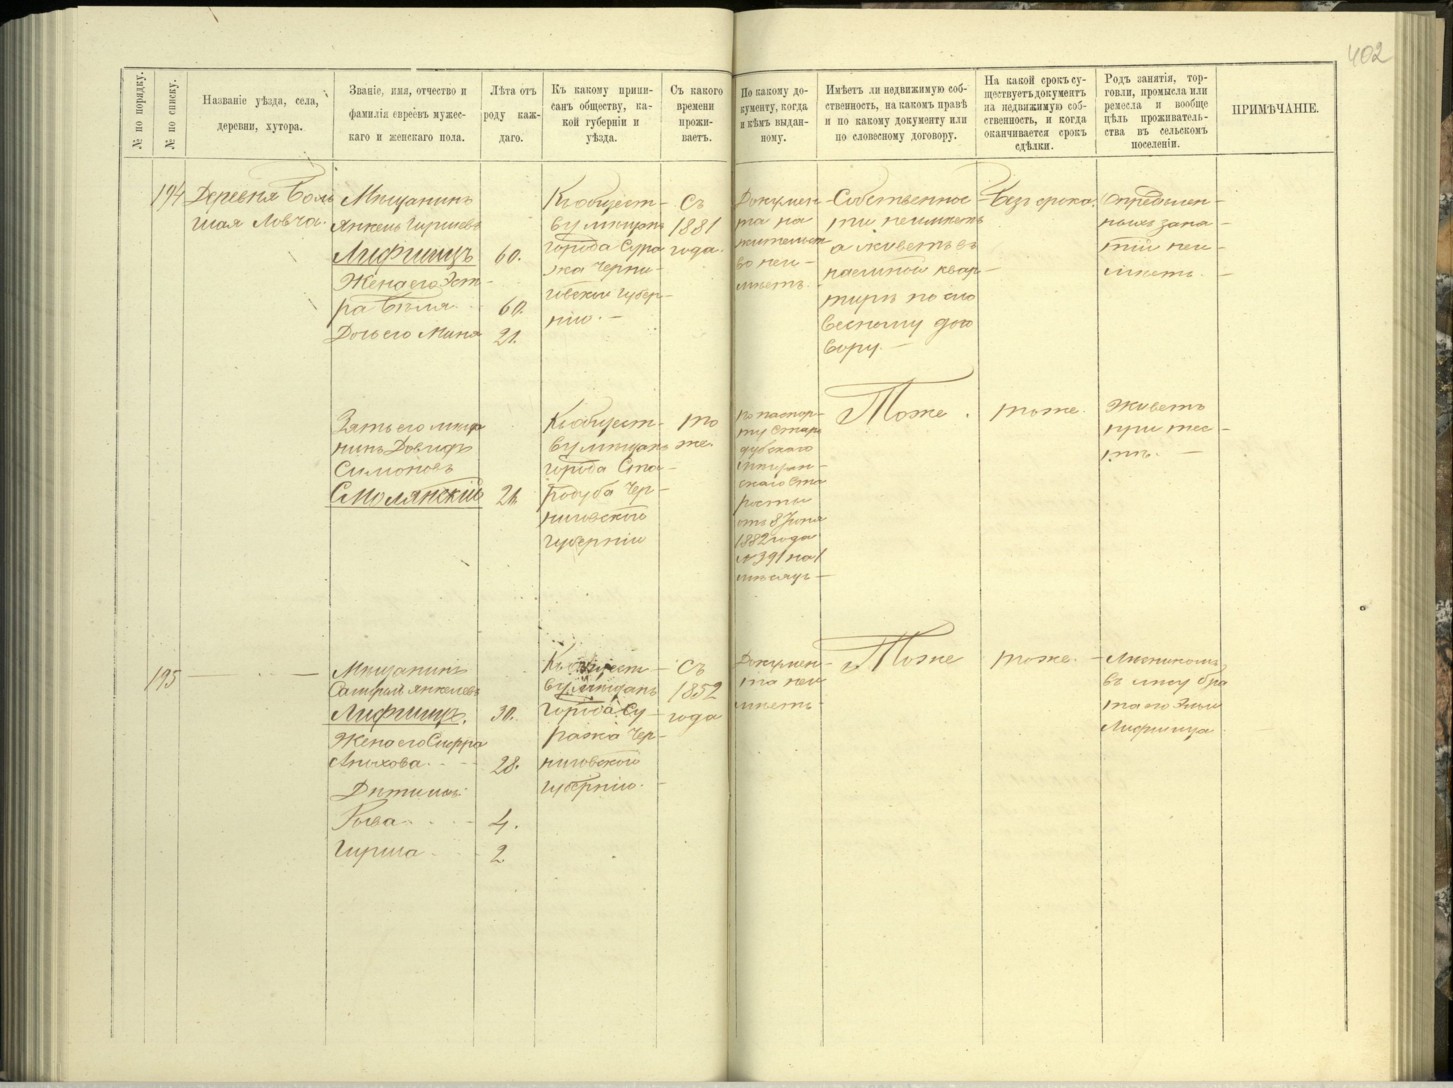 402
№ по порядку.
№ по списку.
Названіе уѣзда, села,
деревни, хутора.
Званіе, имя, отчество и
фамилія евреевъ мужес-
каго и женскаго пола.
Лѣта отъ
роду каж-
даго.
Къ какому припи-
санъ обществу, ка-
кой губерніи и
уѣзда.
Съ какого
времени
прожи-
ваетъ.
По какому до-
кументу, когда
и кѣмъ выдан-
ному.
Имѣетъ ли недвижимую соб-
ственность, на какомъ правѣ
и по какому документу или
по словесному договору.
На какой срокъ су-
ществуетъ документъ
на недвижимую соб-
ственность, и когда
оканчивается срокъ
сдѣлки.
Родъ занятія, тор-
говли, промысла или
ремесла и вообще
цѣль проживатель-
ства въ сельскомъ
поселеніи.
ПРИМѢЧАНІЕ.
194
Деревня Боль
шая Ловча
Мѣщанинъ
Янкель Гиршевъ
Лифшицъ 60.
Жена его Эст-
ра Бейля 60.
Дочь его Маня 21.
Къ общест-
ву мѣщанъ
города Сура
жа Черни-
говской губер-
ніи. —
Съ
1881
года.
Документ
та на
жительст
во неи-
мѣетъ
Собственнос
ти неимѣетъ
а живетъ въ
наемной квар-
тирѣ по сло
весному дого
вору. —
Безъ срока.
Опредѣлен-
ныхъ заня-
тій неи-
мѣетъ. —
Зять его мѣща
нинъ Довидъ
Симоновъ
Смолянскій 21.
Къ общест-
ву мѣщанъ
города Ста-
родуба Чер-
ниговской
губерніи
то
же.
По паспор-
ту Старо
дубскаго
мѣщан-
скаго ста
росты
отъ 8 Іюня
1882 года
№ 391 на 1
мѣсяцъ —
Тоже.
тоже.
Живетъ
при тес-
тѣ. —
195
Мѣщанинъ
Янкелевъ
Лифшицъ. 30.
Жена его Сифра
28.
Дѣти ихъ:
4.
Гирша 2
Къ общест-
ву мѣщанъ
города Су-
ража Чер-
ниговской
губерніи. —
Съ
1852
года
Докумен-
та неи
мѣетъ-
Тоже
тоже.
въ лѣсу бра
та его
Лифшица